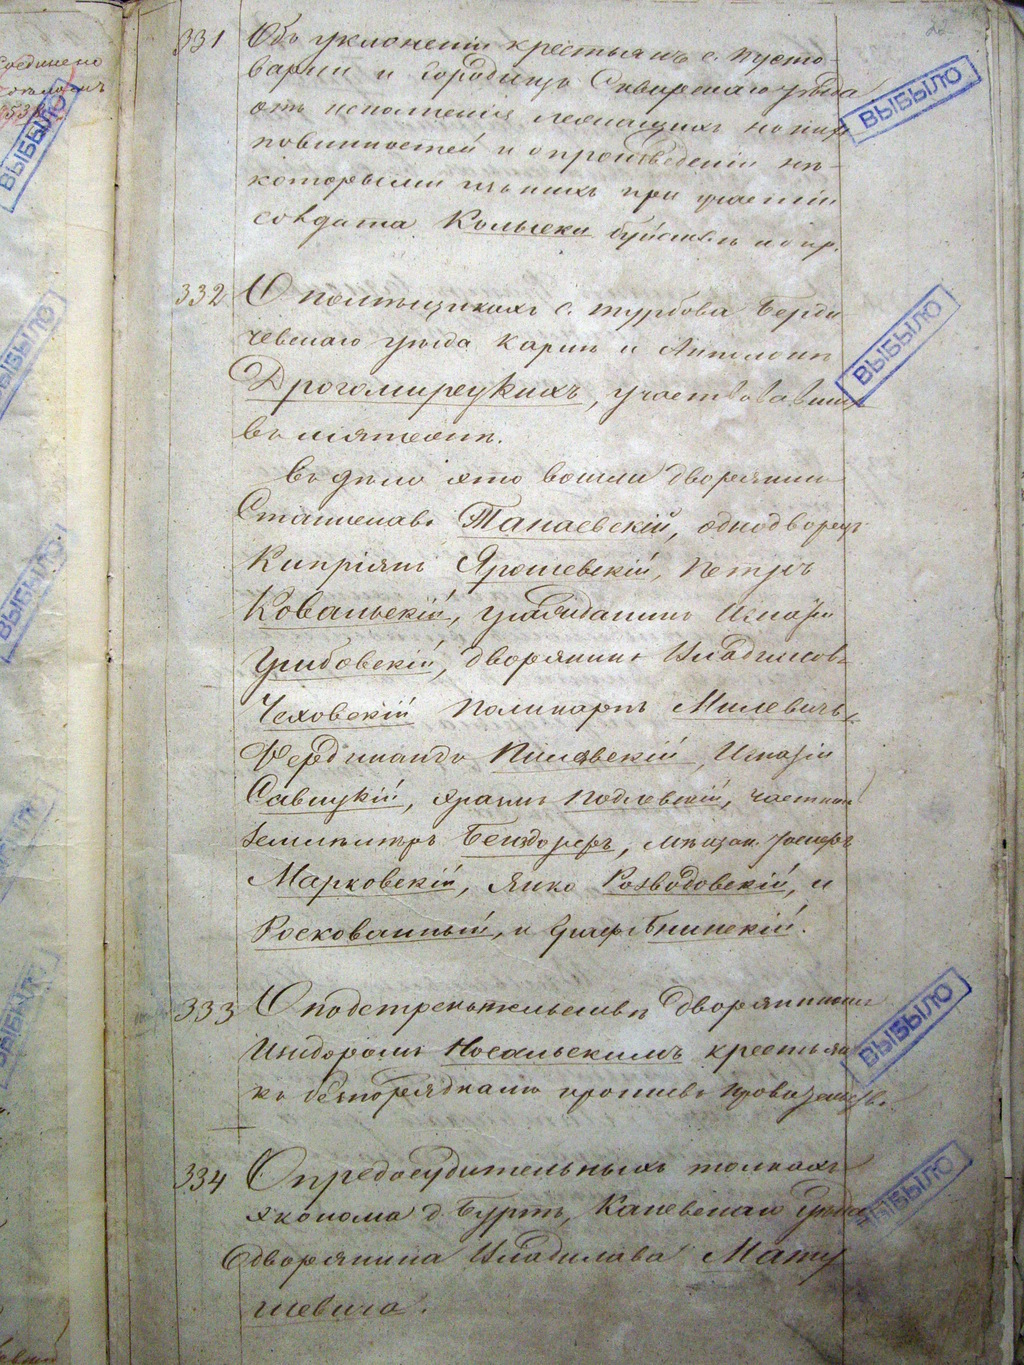 Соединено
ВЫБЫЛО
331 Объ уклоненіи крестьянъ с. Пусто-
варни и Городищъ Сквирскаго уѣзда
отъ исполненія лежащихъ на нихъ
повинностей и о произведеніи нѣ-
которыми изъ нихъ при участіи
солдата Колыски буйствъ и пр.
ВЫБЫЛО
332 О помѣщикахъ с. Турбова Берди
чевскаго уѣзда Карлѣ и Антонѣ
Дрогомирецкихъ, участвовавшихъ
въ мятежѣ.
ВЫБЫЛО
Въ дѣло это вошли дворянинъ
Станиславъ Танаевскій, однодворецъ
Кипріянъ Ярошевскій, Петръ
Ковальскій, гражданинъ Игнатій
Грибовскій, дворянинъ Владиславъ
Чеховскій Поликарпъ Милевичъ,
Фердинандъ Пилявскій, Игнатій
Савицкій, Подлевскій, частный
землемѣръ, мѣщан.
Марковскій, Янко Розводовскій, и
Роскованный, и графъ Бнинскій.
333 О подстрекательствѣ дворяниномъ
Изидоромъ Носальскимъ крестьянъ
къ безпорядкамъ противъ правительств.
ВЫБЫЛО
334 О предосудительныхъ толкахъ
эконома д. Буртъ, Каневскаго уѣзда
дворянина Владислава Мату
шевича.
ВЫБЫЛО
ВЫБЫЛО
ВЫБЫЛО
ВЫБЫЛО
ВЫБЫЛО